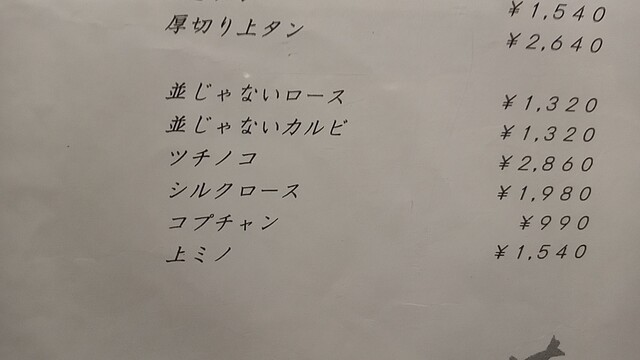 ¥1,540
厚切り上タン ¥2,640
並じゃないロース ¥1,320
並じゃないカルビ ¥1,320
ツチノコ ¥2,860
シルクロース ¥1,980
コプチャン ¥990
上ミノ ¥1,540